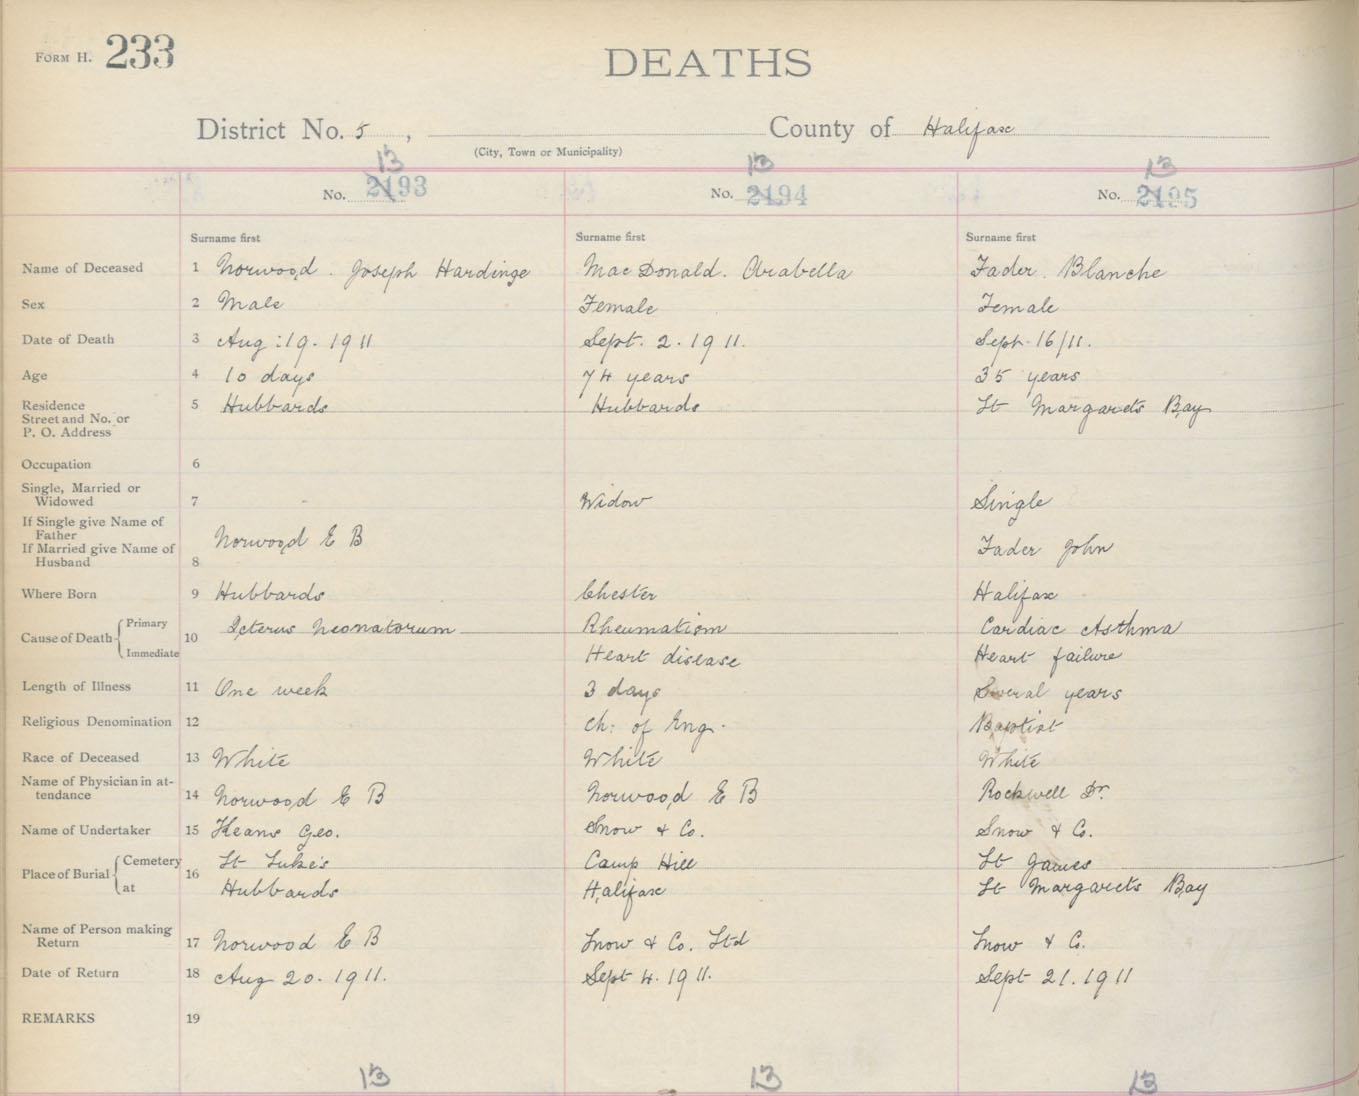 FORM H. 233
DEATHS
District No. 5, County of Halifax
(City, Town or Municipality)
13 13 13
No. 2193 No. 2194 No. 2195
Surname first Surname first Surname first
Name of Deceased 1 Norwood. Joseph Hardinge MacDonald. Arabella Fader. Blanche
Sex 2 Male Female Female
Date of Death 3 Aug: 19. 1911 Sept. 2. 1911. Sept. 16/11.
Age 4 10 days 74 years 35 years
Residence 5 Hubbards Hubbards St Margarets Bay
Street and No. or
P. O. Address
Occupation 6
Single, Married or
Widowed 7 Widow Single
If Single give Name of
Father Norwood E B
If Married give Name of Fader John
Husband 8
Where Born 9 Hubbards Chester Halifax
Cause of Death Primary 10 Icterus Neonatorum Rheumatism Cardiac Asthma
Immediate Heart disease Heart failure
Length of Illness 11 One week 3 days Several years
Religious Denomination 12 Ch: of Eng. Baptist
Race of Deceased 13 White White White
Name of Physician in at-
tendance 14 Norwood E B Norwood E B Rockwell Dr.
Name of Undertaker 15 Keans Geo. Snow & Co. Snow & Co.
Place of Burial Cemetery 16 St Luke's Camp Hill St James
at Hubbards Halifax St Margarets Bay
Name of Person making
Return 17 Norwood E B Snow & Co. Ltd Snow & Co.
Date of Return 18 Aug 20. 1911. Sept 4. 1911. Sept 21. 1911
REMARKS 19
13 13 13